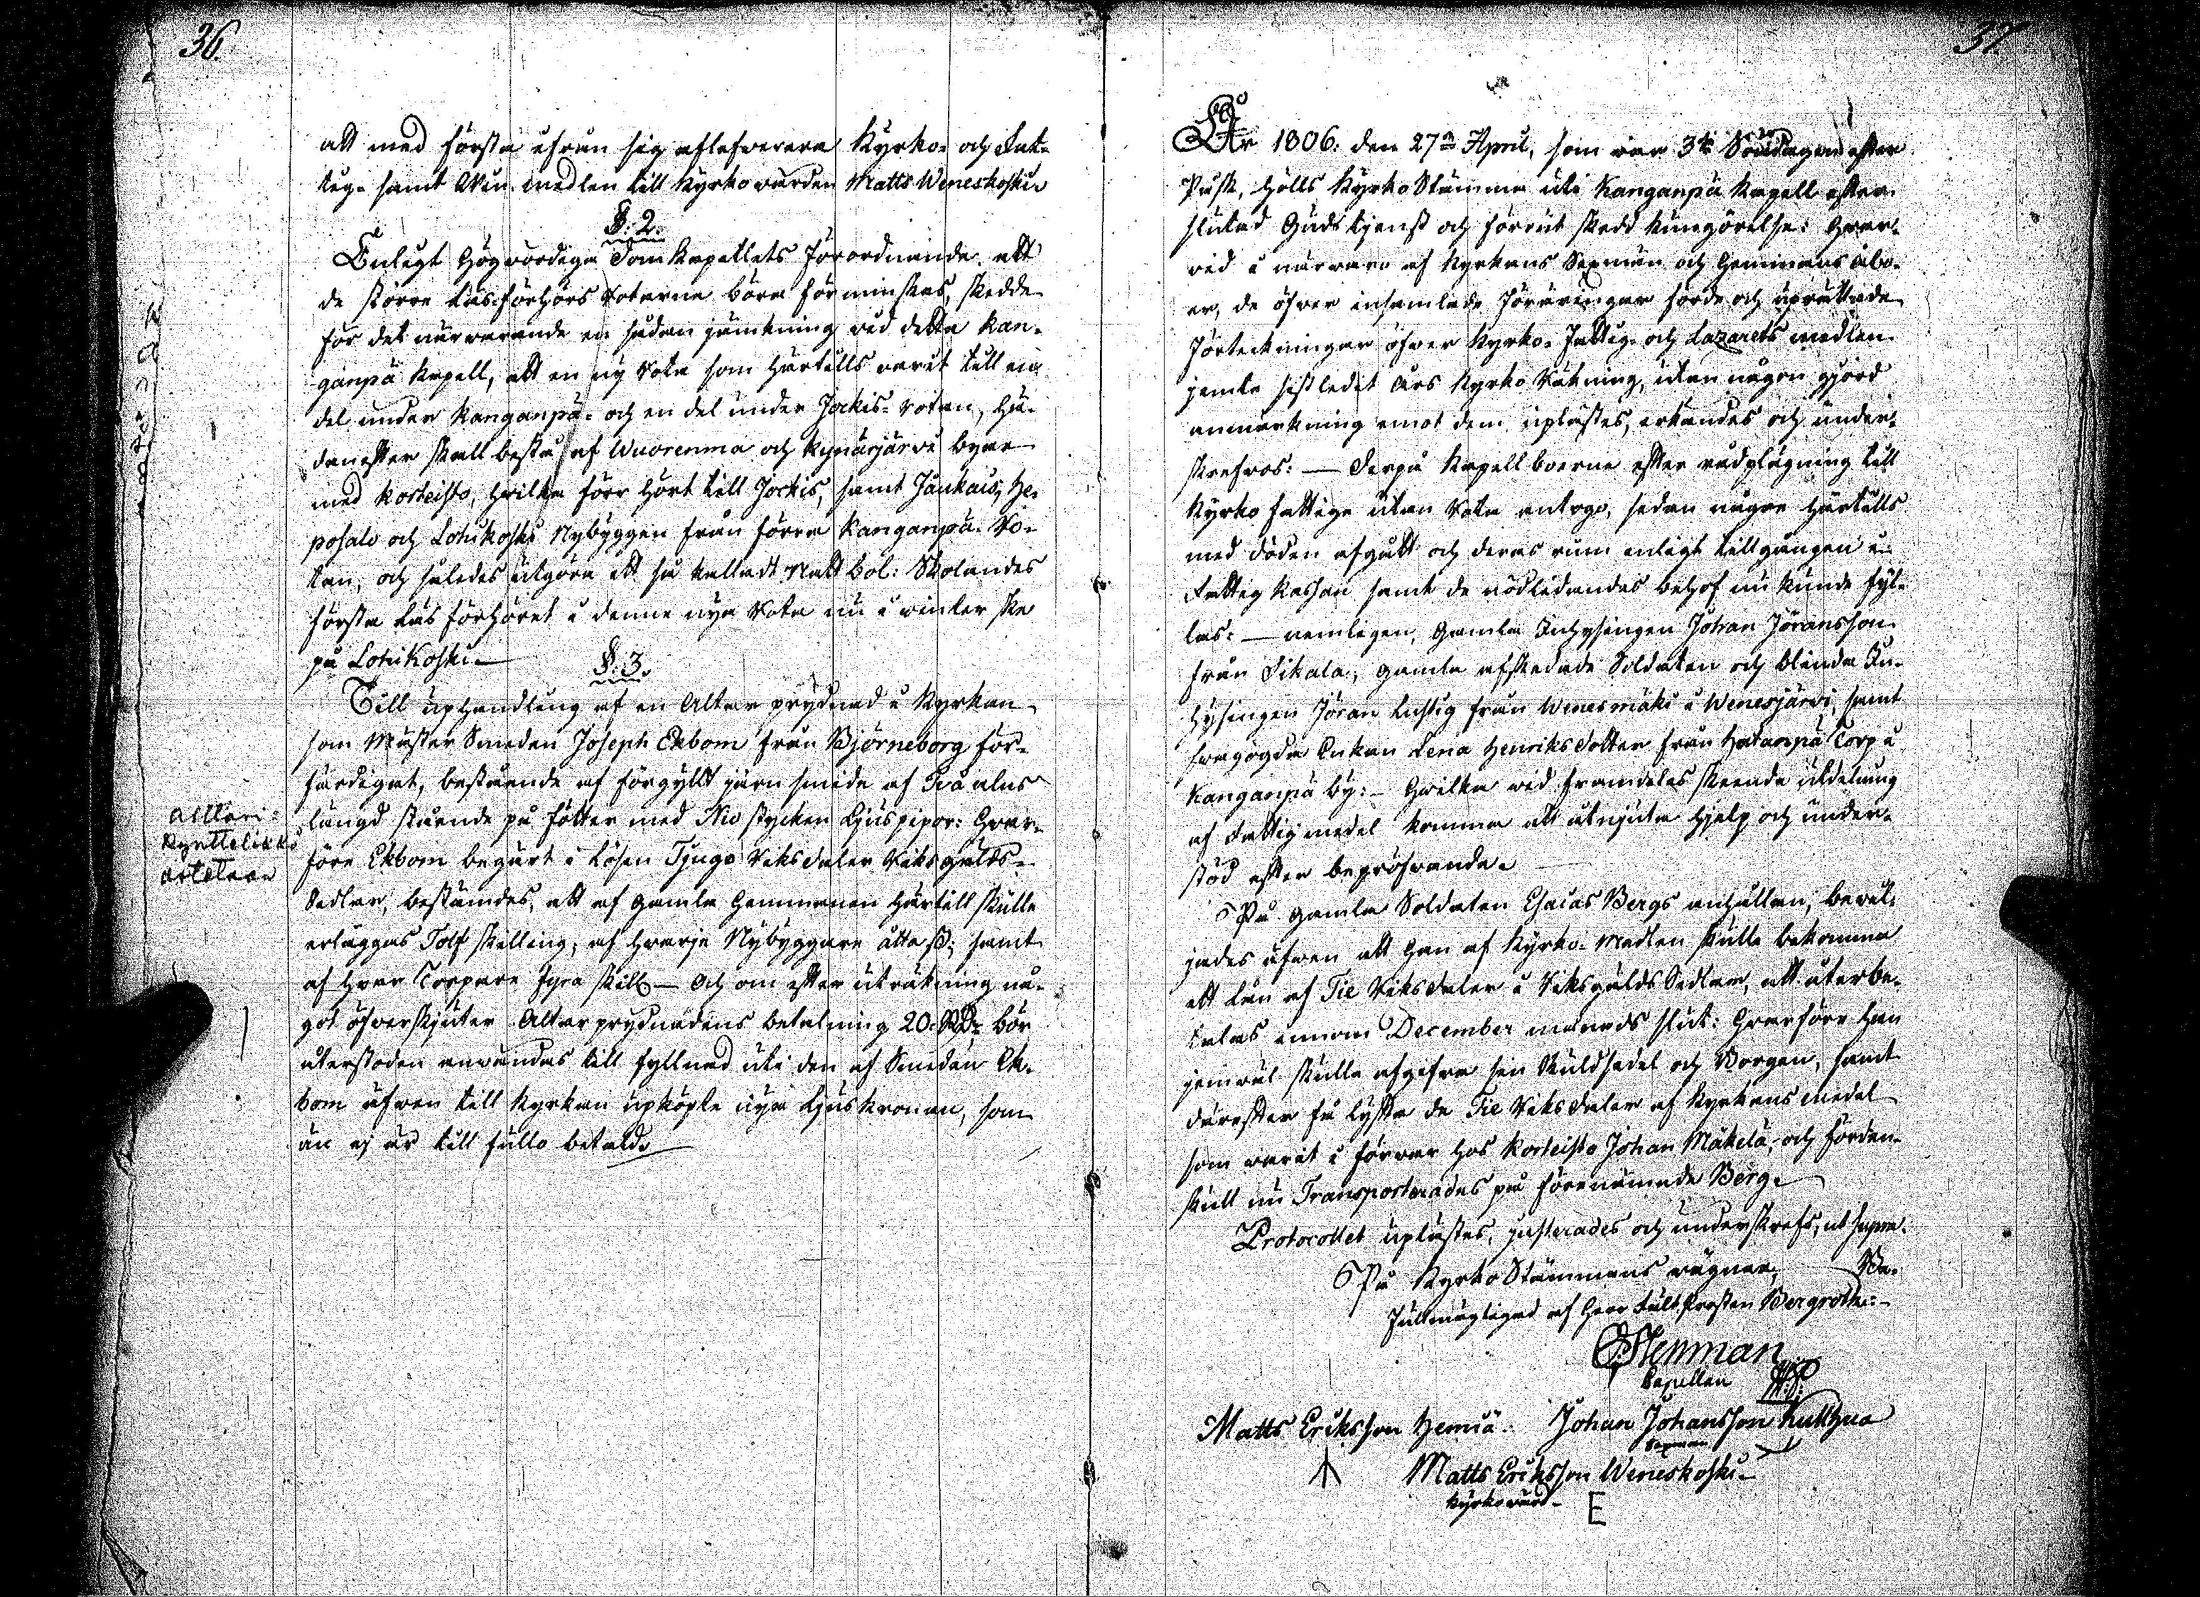 36.
att med första ifrån sig aflefwerera Kyrko- och Fat-
tig- samt Win-medlen till Kyrkowärden Matts Weneskoski
§: 2.
Enligt Högwördiga DomKapitlets Förordnande att
de större Läsförhörs Rotarne böra förminskas, skedde
för det närwarande en sådan jämkning wid detta Kan-
ganpä Kapell, att en ny Rota som härtills warit till en
del under Kanganpä- och en del under Jockis-rotan, hä-
danefter skall bestå af Wuorenma och Kynäsjärwi byar
med Korteisto, hwilka förr hört till Jockis, samt
posalo och Lohikoski Nybyggen från förra Kanganpä-Ro-
tan, och således utgöra ett så kalladt Natt bol: Skolandes
första Läsförhöret i denne nya Rota nu i winter ske
på Lohikoski.
§: 3.
Till uphandling af en Altar prydnad i Kyrkan
som Mäster Smeden Joseph Ekbom från Björneborg för-
färdigat, bestående af förgyllt järn smide af Två alns
längd stående på fötter med Nio stycken Ljuspipor: Hwar-
före Ekbom begärt i Lösen Tjugo Riksdaler Riksgälds-
Sedlar, bestämdes, att af gamla Hemmanen härtill skulle
erläggas Tolf skilling, af hwarje Nybyggare åtta ß; samt
af hwar Torpare Fyra skill – Och om efter uträkning nå-
got öfwerskjuter Altarprydnadens betalning 20. RD: bör
återstoden anwändas till fyllnad uti den af Smeden Ek-
bom äfwen till Kyrkan upköpte nya Ljuskronan, som
än ej är till fullo betald.
alttari-
kynttelikkö
ostetaan
37
År 1806: den 27de April, som war 3die Söndagen efter
Påsk, hölls KyrkoStämma uti Kanganpä Kapell efter
slutad Gudstjenst och förrut skedd kungörelse: Hwar-
wid i närwaro af Kyrkans Sexmän och Hemmans åbo-
er, de öfwer insamlade Föräringar förde och uprättade
Förteckningar öfwer Kyrko- Fattig- och Lazaretts medlen
jemte sistledet års Kyrko Räkning, utan någon gjord
anmärkning emot dem uplästes, erkändes och under-
skrefwos: — Derpå Kapellboerne efter rådplägning till
Kyrko fattige utan Rota antogo, sedan några härtills
med döden afgått och deras rum enligt tillgången i
Fattig Kassan samt de nödlidandes behof nu kunde fyl-
las: — nemligen, Gamla Inhysingen Johan Jöransson
från Sikala; gamla afskedade Soldaten och blinda In-
hysingen Jöran Lustig från Wenesmäki i Wenesjärwi, samt
Enkan Lena Henriksdotter från Hatanpä Torp i
Kanganpä by: – Hwilka wid framdeles skeende utdelning
af Fattigmedel komma att åtnjuta hjelp och under-
stöd efter bepröfwande.
På gamla Soldaten Esaias Bergs anhållan, bewil-
jades äfwen att han af Kyrko-Medlen skulle bekomma
ett lån af Tie Riksdaler i Riksgälds Sedlar, att återbe-
talas innom December månads slut: Hwarföre han
jemwäl skulle afgifwa sin Skuldsedel och Borgen, samt
därefter få lyfta de Tie Riksdaler af Kyrkans medel
som warit i förwar hos Korteisto Johan Mäkelä, och fördens
skull nu Transporterades på förenämnde Berg.
Protocollet uplästes, justerades och underskrefs, ut supra.
På KyrkoStämmans wägnar,
Be-
fullmägtigad af Herr Fält Prosten Bergroth: –
Stenman
Capellan
Matts Eriksson Hemiä. Johan Johansson Kulhua
Sexman
Matts Eriksson Weneskoski
Kyrkowärd
E